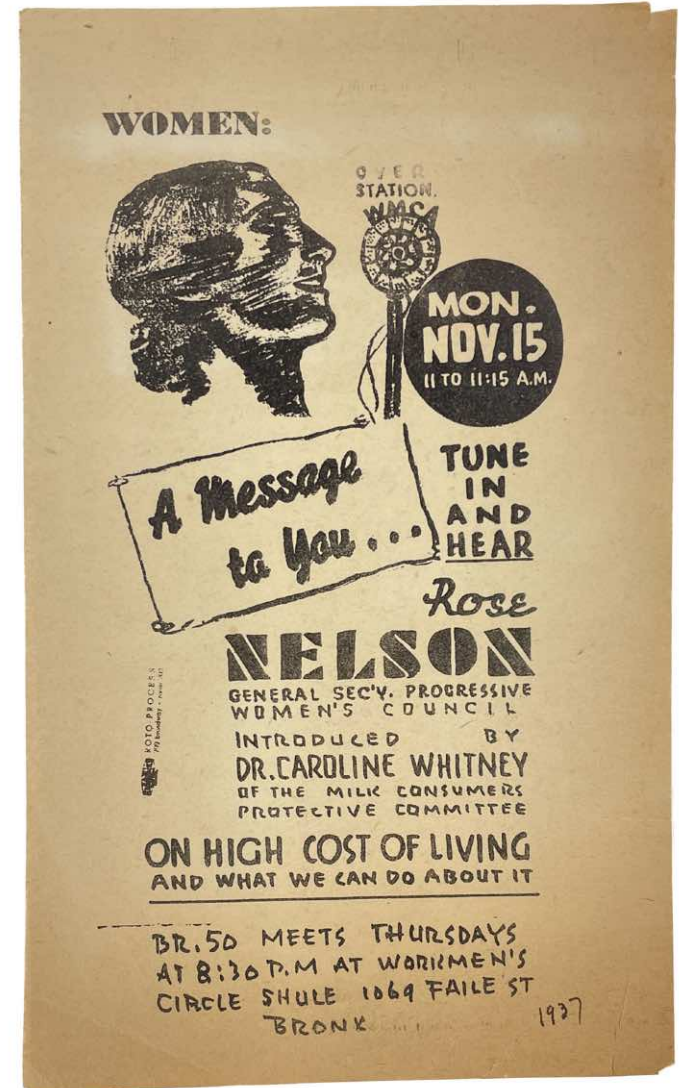 WOMEN:
OVER
STATION.
WMCA
MON.
NOV. 15
11 TO 11:15 A.M.
A Message
to You...
TUNE
IN
AND
HEAR
Rose
NELSON
GENERAL SEC'Y. PROGRESSIVE
WOMEN'S COUNCIL
INTRODUCED BY
DR. CAROLINE WHITNEY
OF THE MILK CONSUMERS
PROTECTIVE COMMITTEE
KOTO PROCESS
ON HIGH COST OF LIVING
AND WHAT WE CAN DO ABOUT IT
BR. 50 MEETS THURSDAYS
AT 8:30 P.M AT WORKMEN'S
CIRCLE SHULE 1069 FAILE ST
BRONX
1937